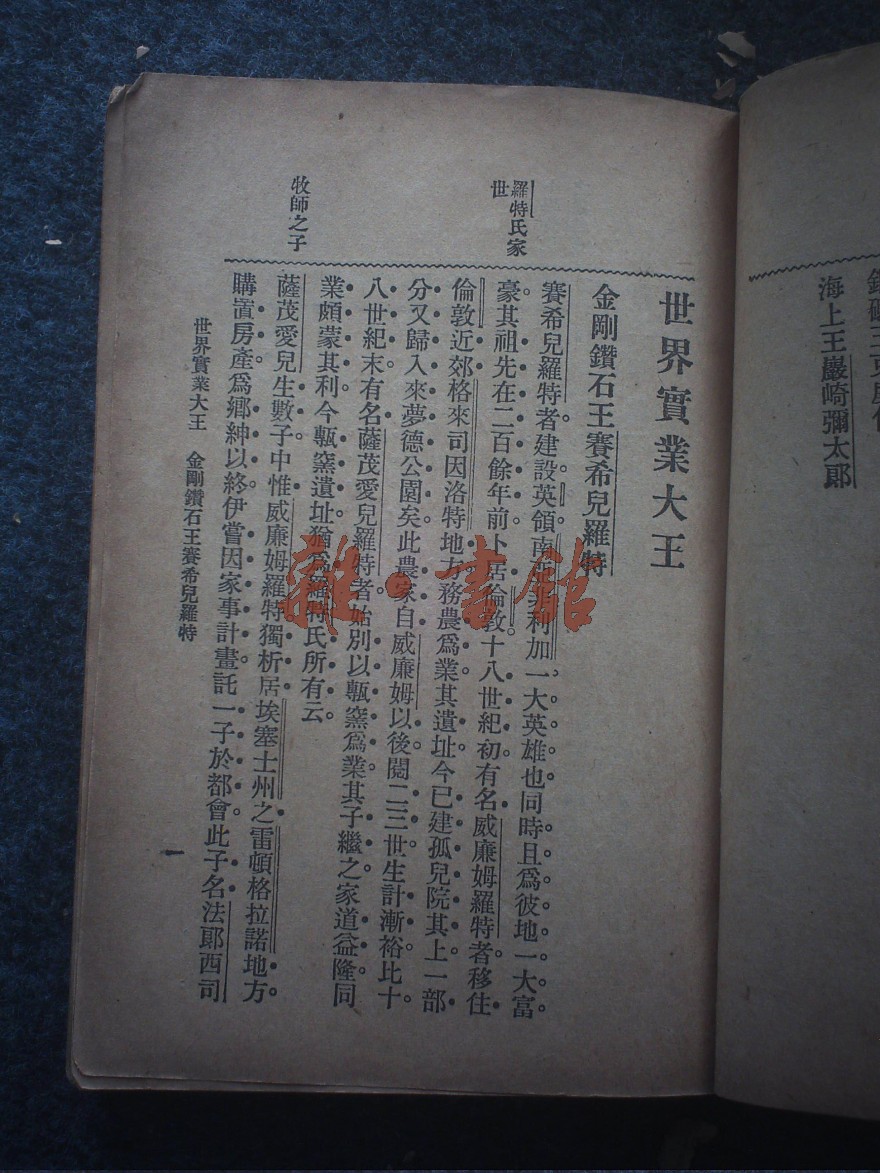 海上王巖崎彌太郞
世界實業大王
金剛鑽石王賽希兒羅特
羅特氏家
世
賽希兒羅特者建設英領南亞美利加一大英雄也同時且爲彼地一大富
豪其祖先在二百餘年前卜居倫敦十八世紀初有名威廉姆羅特者移住
倫敦近郊格來司因洛特地方務農爲業其遺址今已建孤兒院其上一部
分又歸入來夢德公園矣此農家自威廉姆以後閱二三世生計漸裕比十
八世紀末有名薩茂愛兒羅特者始別以甎窯爲業其子繼之家道益隆同
業頗蒙其利今甎窯遺址猶爲羅特氏所有云
牧師之子
薩茂愛兒生數子中惟威廉姆羅特獨析居埃塞士州之雷頓格拉諾地方
購置房產爲鄉紳以終伊嘗因家事計畫託一子於都會此子名法郞西司
世界實業大王 金剛鑽石王賽希兒羅特
一
雜·書館